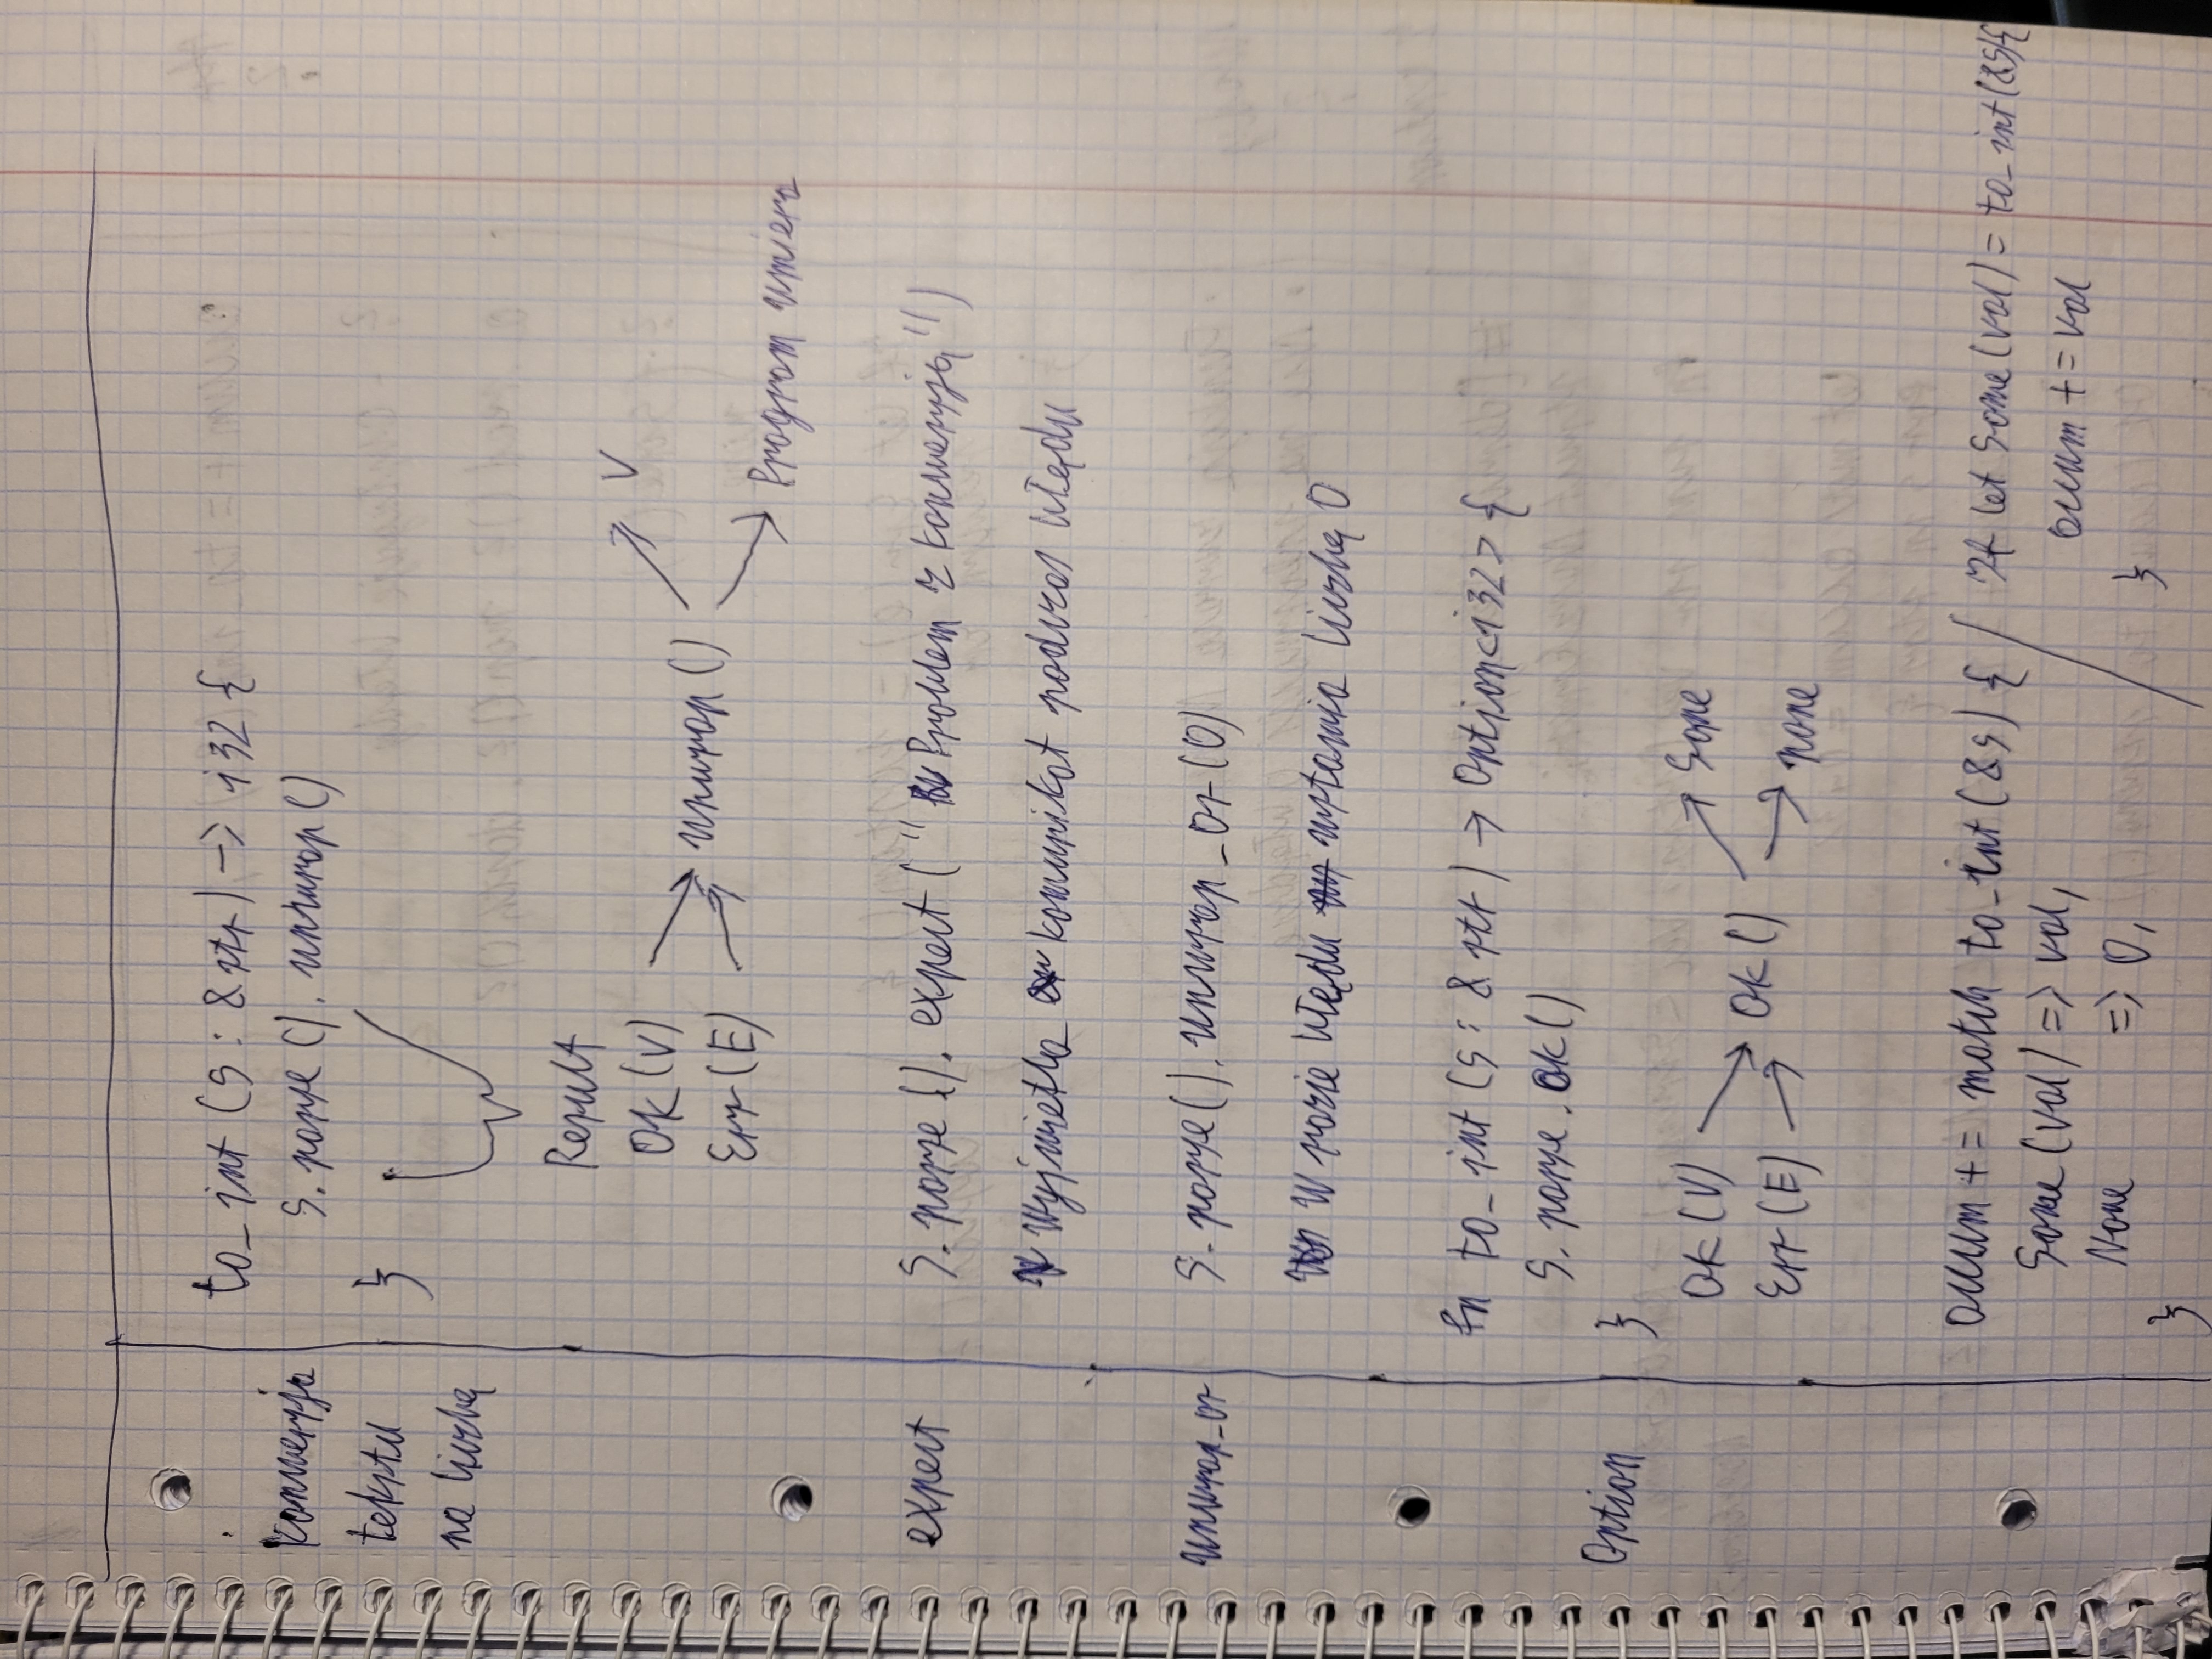 Konwersja
tekstu
na liczbę
to_int (s: &str) -> i32 {
s.parse().unwrap()
}
Result
Ok(V)
Err(E)
unwrap()
V
Program umiera
expect
s.parse().expect("Problem z konwersją")
Wyświetla komunikat podczas błędu
unwrap_or
s.parse().unwrap_or(0)
W razie błędu ustawia liczbę 0
Option
fn to_int (s: &str) -> Option<i32> {
s.parse.ok()
}
Ok(V)
Err(E)
ok()
Some
none
accum += match to_int(&s) {
Some(val) => val,
None => 0,
}
if let Some(val) = to_int(&s){
accum += val
}